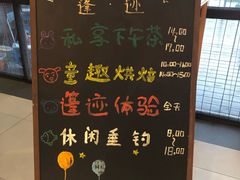 蓬·迹
私享下午茶 14:00
17:00
童趣烘焙 10:00-15:00
蓬迹体验 全天
休闲垂钓 8:00
18:00